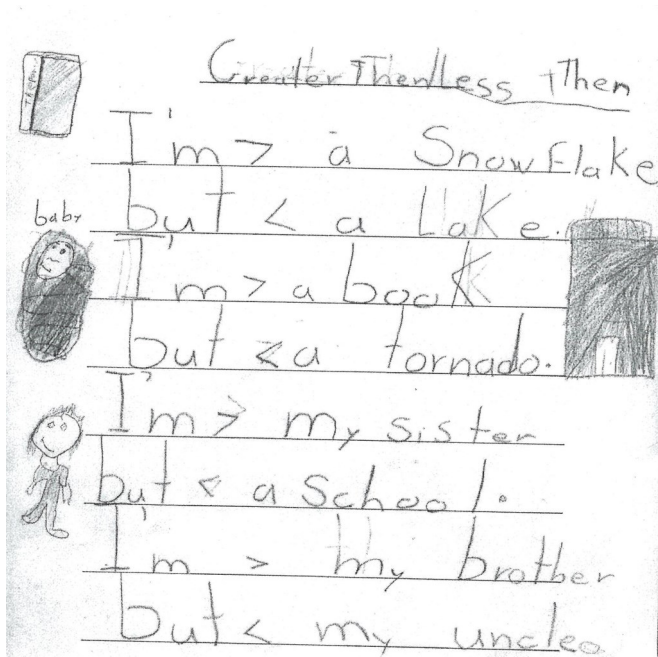 Greater Then/Less Then
I'm > a Snowflake
but < a Lake.
baby
I'm > a book
but < a tornado.
I'm > my sister
but < a School.
I'm > my brother
but < my uncle.